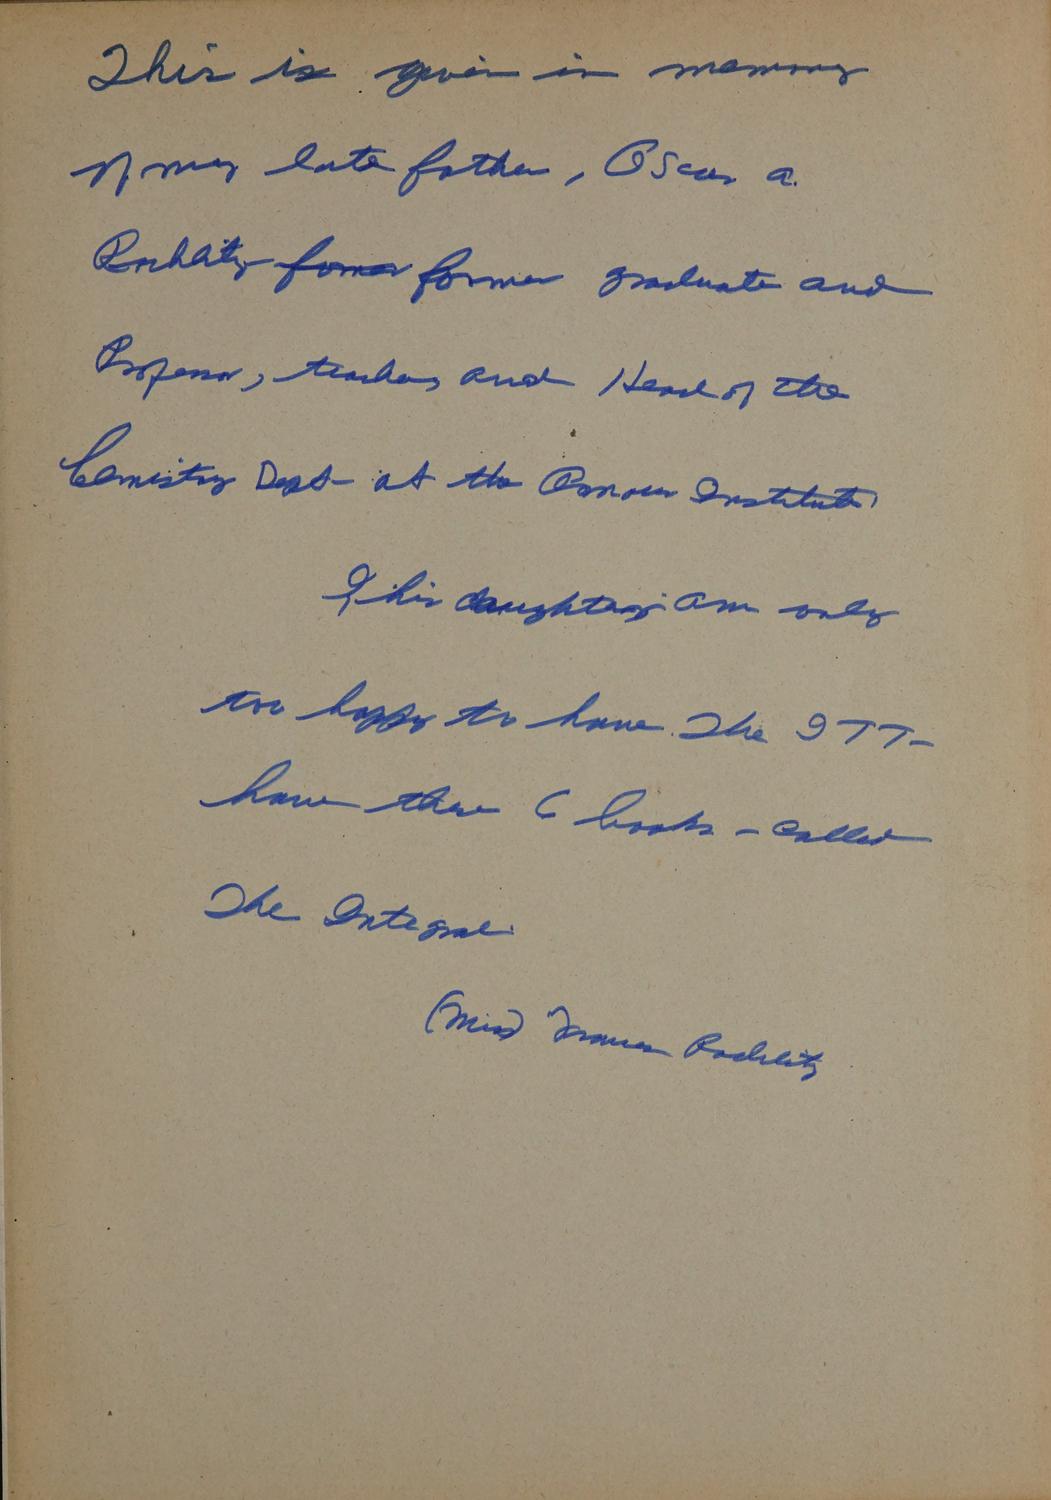 This is given in memory
of my late father, Oscar A.
Rochlitz former former graduate and
Professor, teacher, and Head of the
Cemistry Dept- at the Armour Institute,
I his daughter, am only
too happy to have The ITT-
have these 6 books - called
The Integral.
(Miss) Frances Rochlitz